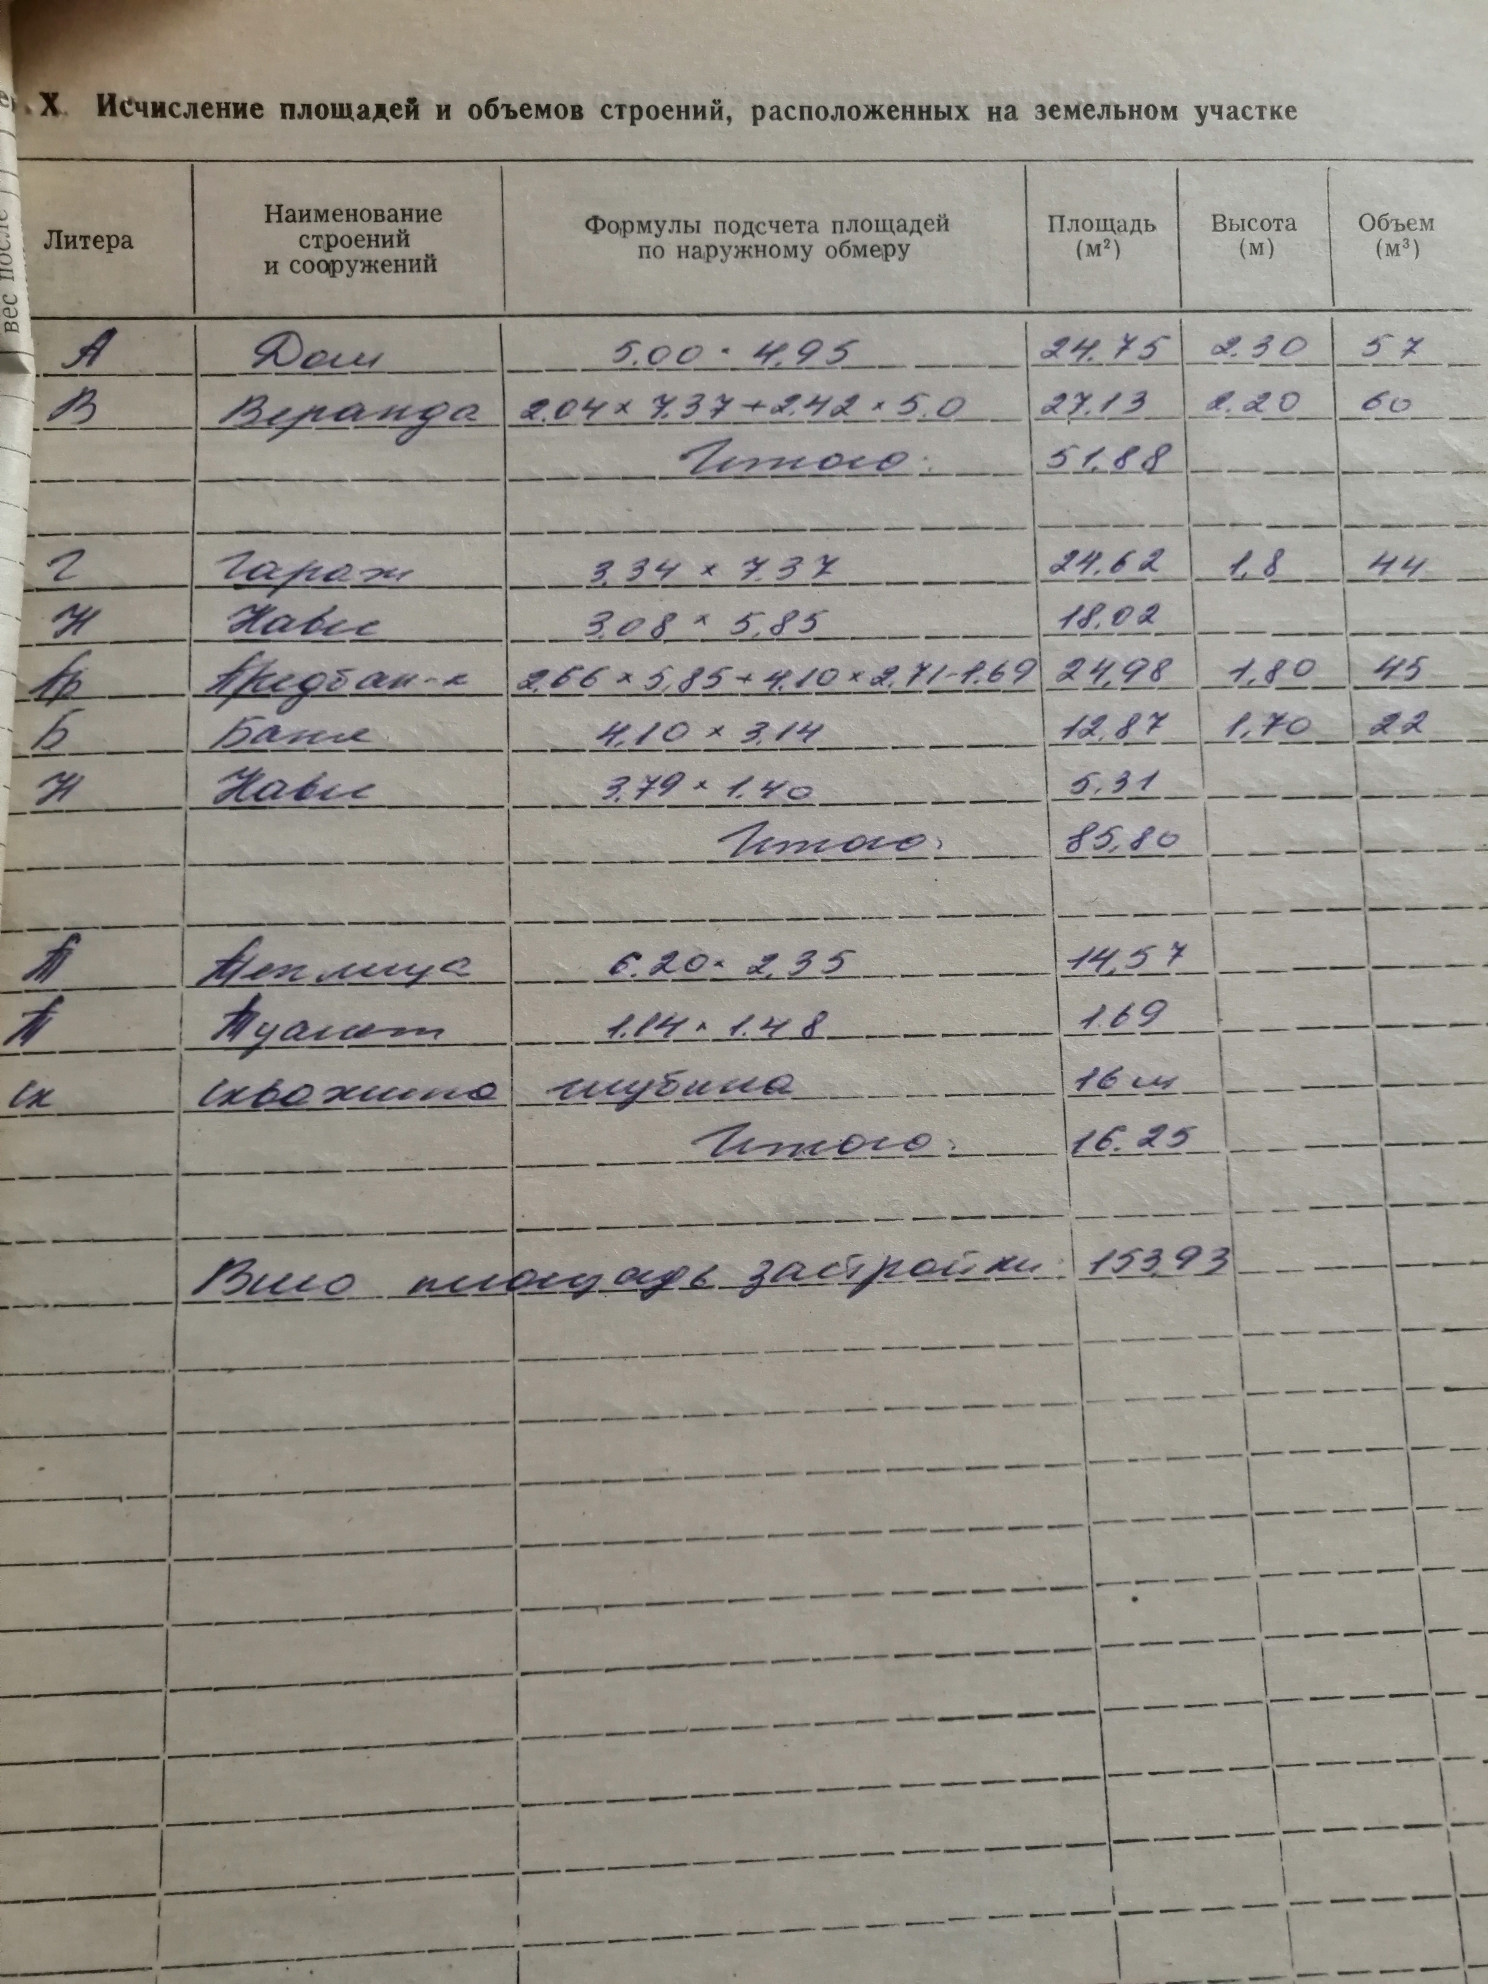 X. Исчисление площадей и объемов строений, расположенных на земельном участке
Литера Наименование строений и сооружений Формулы подсчета площадей по наружному обмеру Площадь (м²) Высота (м) Объем (м³)
А Дом 5.00 × 4,95 24.75 2.30 57
В Веранда 2.04 × 7.37 + 2.42 × 5.0 27.13 2.20 60
Итого: 51,88
Г Гараж 3.34 × 7.37 24.62 1,8 44
Н Навес 3.08 × 5,85 18,02
Пр Предбан-к 2.66 × 5,85 + 4.10 × 2.71 - 1.69 24,98 1,80 45
Б Баня 4,10 × 3,14 12,87 1,70 22
Н Навес 3.79 × 1.40 5,31
Итого: 85,80
Т Теплица 6.20 × 2,35 14,57
Т Туалет 1.14 × 1.48 1.69
ск скважина глубина 16 м
Итого: 16.25
площадь застройки 153,93
вес после